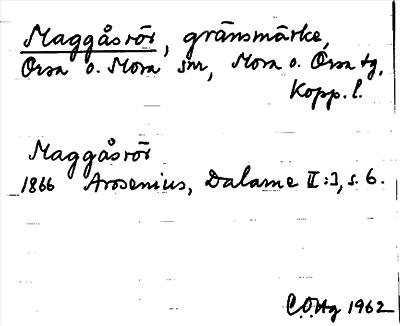 Maggåsrör, gränsmärke,
Orsa o. Mora snr, Mora o. Orsa tg,
Kopp. l.
Maggåsrör
1866 Arosenius, Dalarne II:3, s. 6.
1962